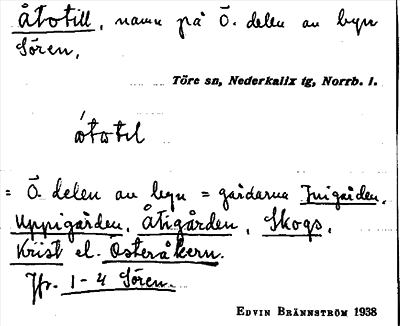 Åtotill, namn på Ö. delen av byn
Sören.
Töre sn, Nederkalix tg, Norrb. l.
= Ö. delen av byn = gårdarna Inigården,
Uppigården, Åtigården, Skogs,
Krist el. Osteråkern.
Jfr. 1-4 Sören.
EDVIN BRÄNNSTRÖM 1938